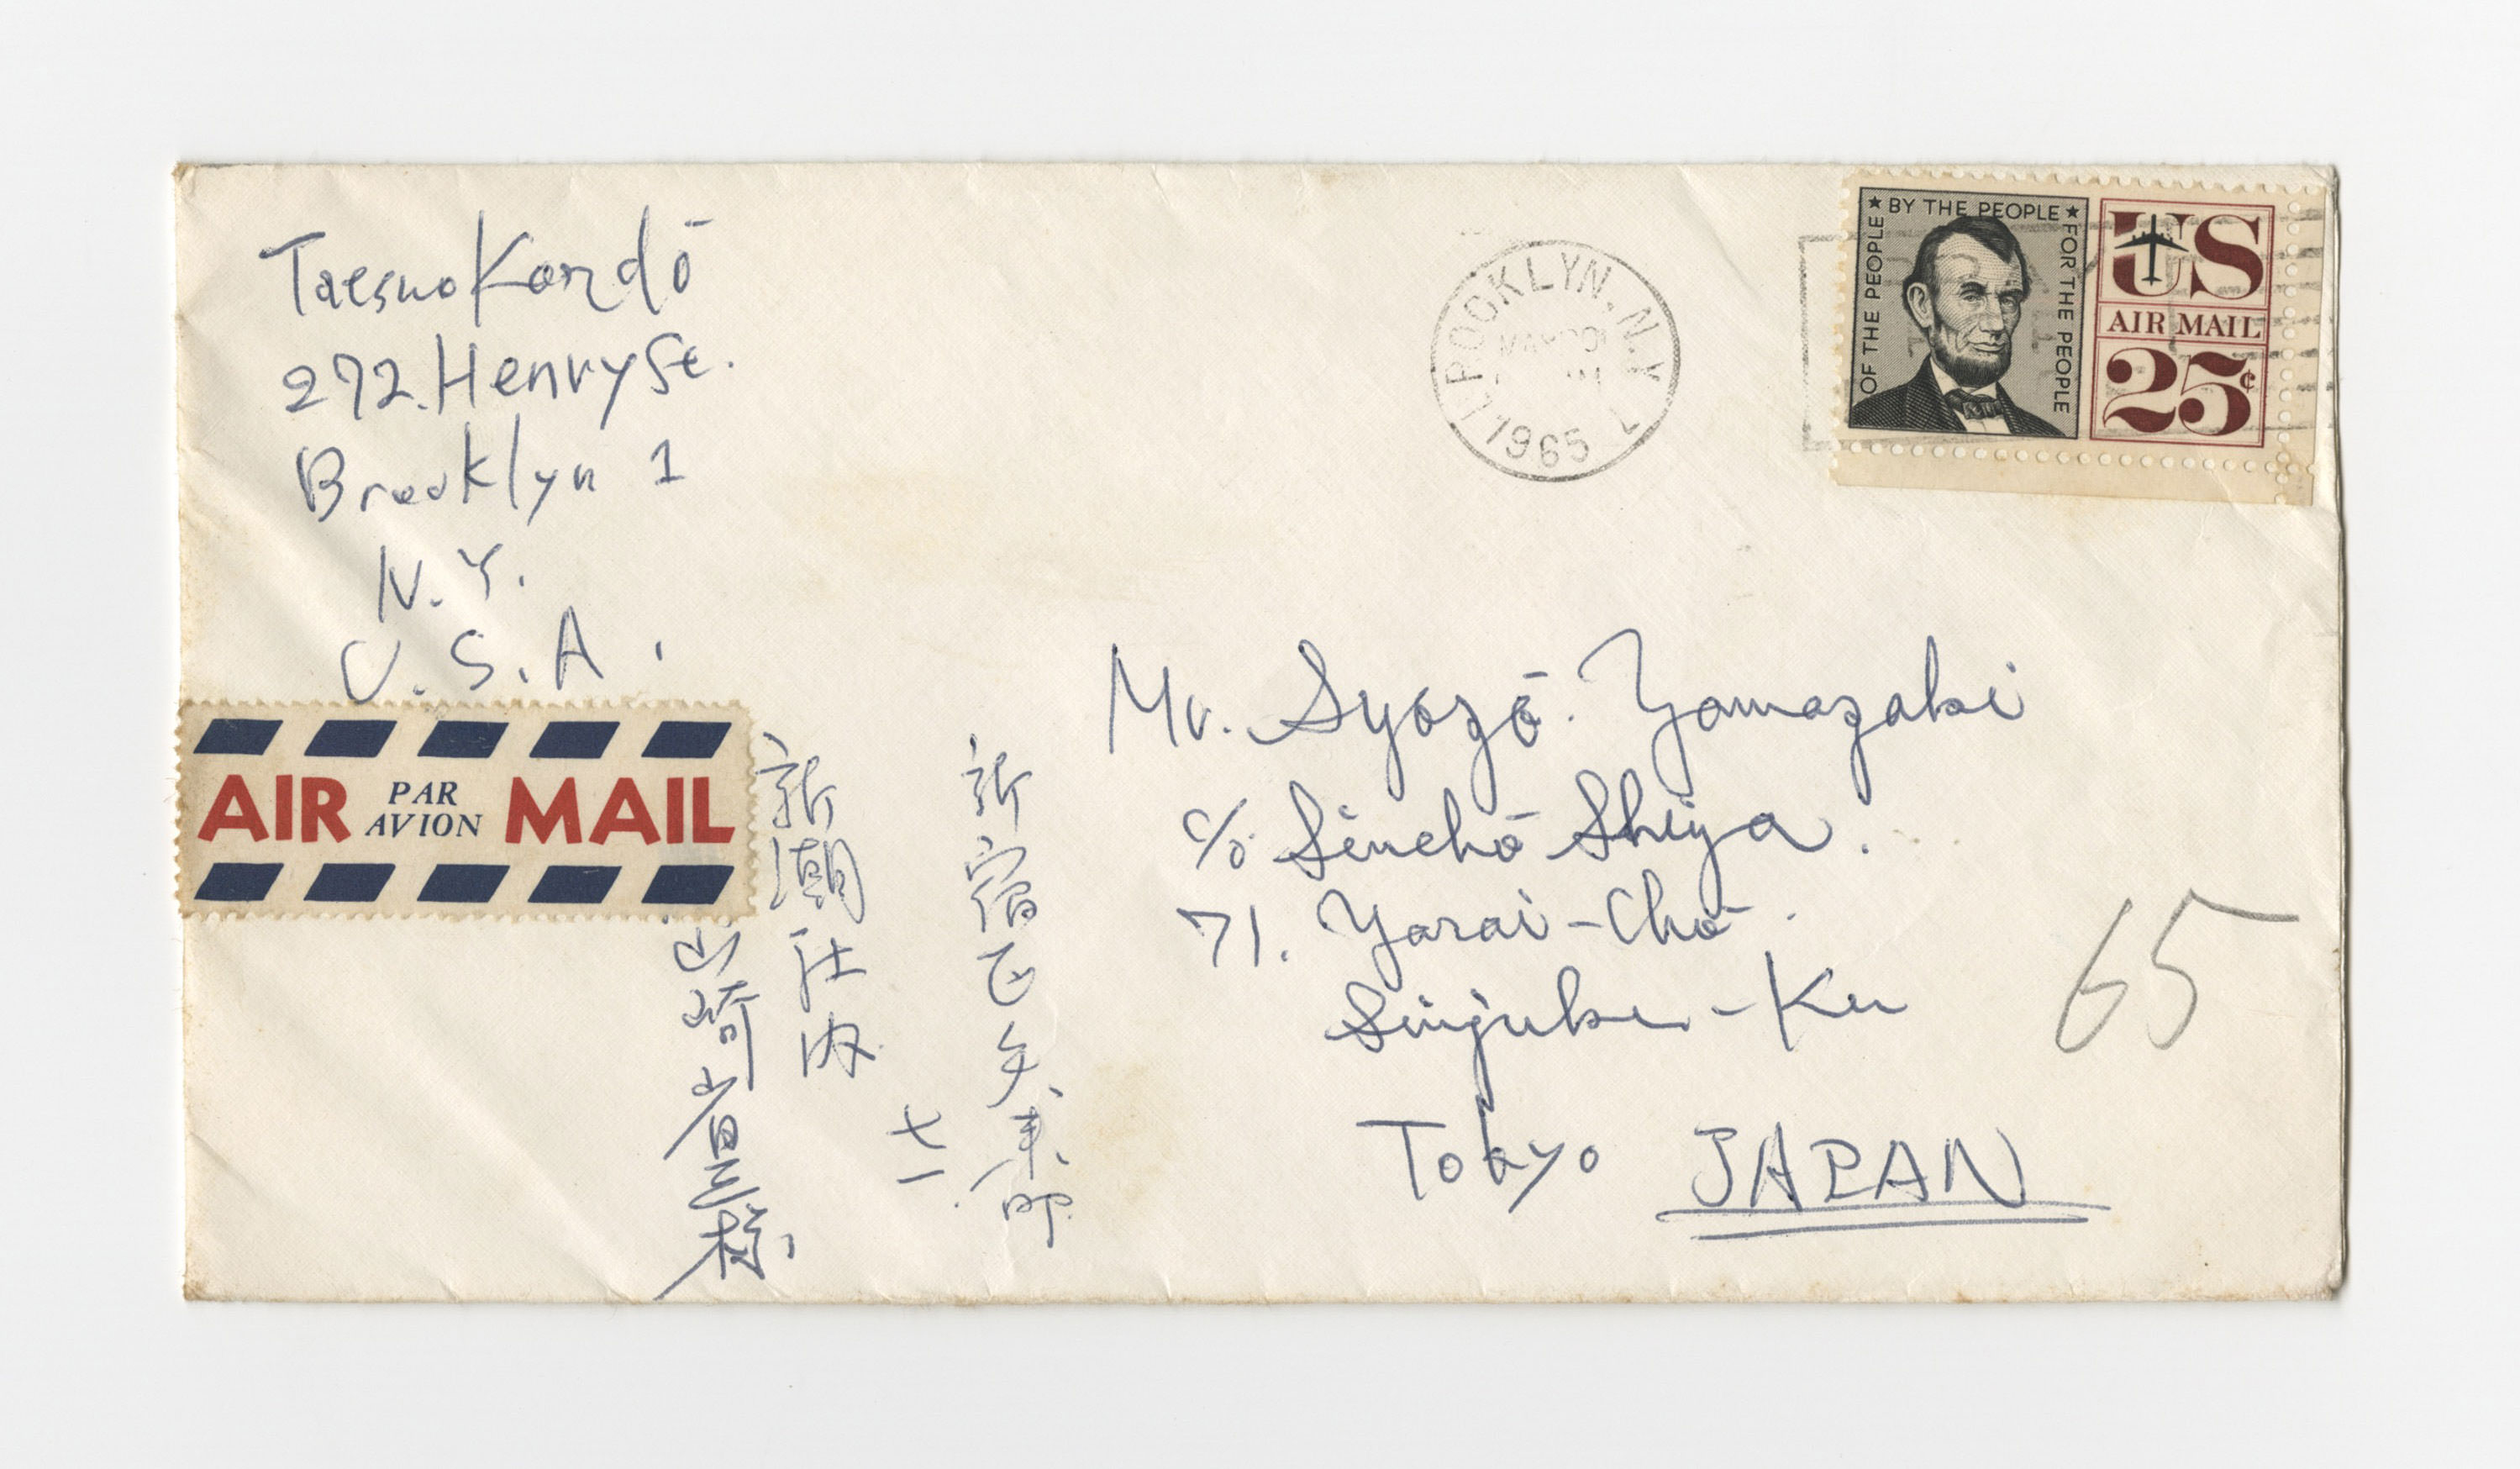 Taesuo Kondō
272. Henry St.
Brooklyn 1
N.Y.
U.S.A.
BROOKLYN, N.Y.
1965
OF THE PEOPLE ★ BY THE PEOPLE ★ FOR THE PEOPLE
US
AIR MAIL
25¢
AIR PAR AVION MAIL
Mr. Syozō. Yamazaki
c/o Sinchō Shiya.
71. Yarai-Chō.
Sinjuku-Ku
Tokyo JAPAN
65
新宿区矢来町
七一
新潮社内
山崎省三様